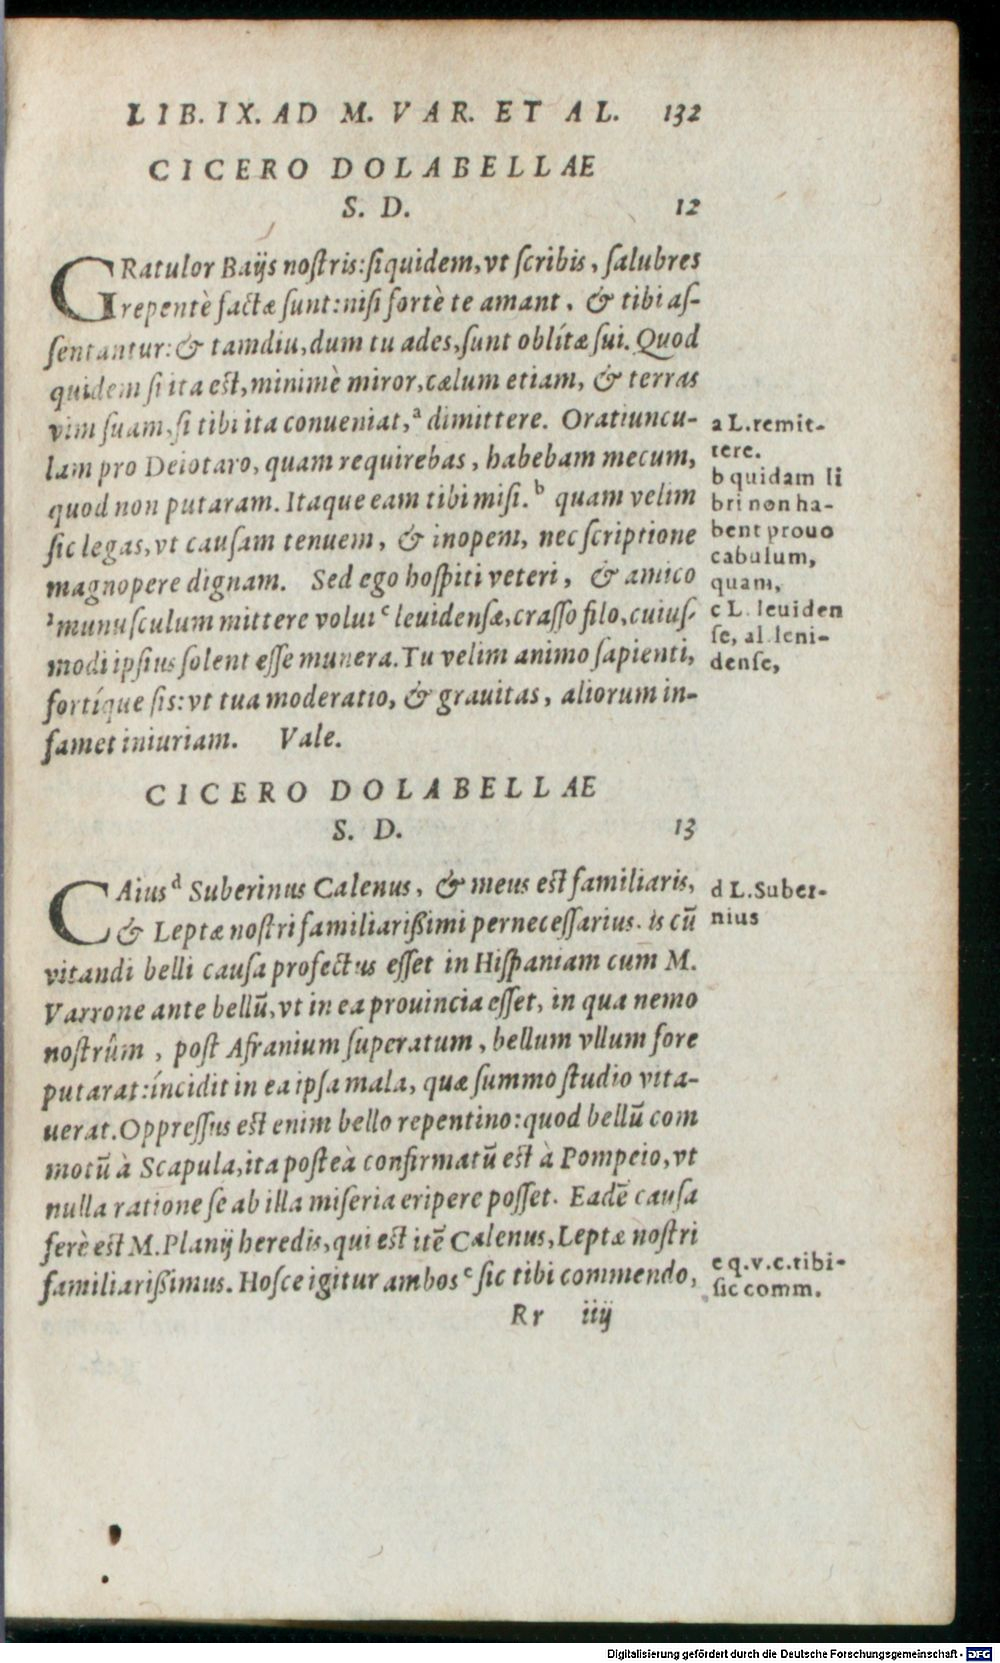 LIB. IX. AD M. VAR. ET AL. 132
CICERO DOLABELLAE
S. D. 12
GRatulor Baijs noſtris: ſiquidem, vt ſcribis, ſalubres
repentè factæ ſunt: niſi fortè te amant, & tibi aſ-
ſentantur: & tamdiu, dum tu ades, ſunt oblítæ ſui. Quod
quidem ſi ita eſt, minimè miror, cælum etiam, & terras
vim ſuam, ſi tibi ita conueniat, a dimittere. Oratiuncu-
lam pro Deiotaro, quam requirebas, habebam mecum,
quod non putaram. Itaque eam tibi miſi. b quam velim
ſic legas, vt cauſam tenuem, & inopem, nec ſcriptione
magnopere dignam. Sed ego hoſpiti veteri, & amico
munuſculum mittere volui c leuidenſæ, craſſo filo, cuiuſ-
modi ipſius ſolent eſſe munera. Tu velim animo ſapienti,
fortíque ſis: vt tua moderatio, & grauitas, aliorum in-
famet iniuriam. Vale.
a L. remit-
tere.
b quidam li
bri non ha-
bent pro uo
cabulum,
quam,
c L. leuiden
ſe, al. leni-
denſe,
CICERO DOLABELLAE
S. D. 13
CAius d Suberinus Calenus, & meus eſt familiaris,
& Leptæ noſtri familiarißimi perneceſſarius. is cū
vitandi belli cauſa profectus eſſet in Hiſpaniam cum M.
Varrone ante bellū, vt in ea prouincia eſſet, in qua nemo
noſtrûm, poſt Afranium ſuperatum, bellum vllum fore
putarat: íncidit in ea ipſa mala, quæ ſummo ſtudio vita-
uerat. Oppreſſus eſt enim bello repentino: quod bellū com
motū à Scapula, ita poſteà confirmatū eſt à Pompeio, vt
nulla ratione ſe ab illa miſeria eripere poſſet. Eadē cauſa
ferè eſt M. Planij heredis, qui eſt itē Calenus, Leptæ noſtri
familiarißimus. Hoſce igitur ambos e ſic tibi commendo,
d L. Suber-
nius
e q.v.c. tibi-
ſic comm.
Rr iiij
Digitalisierung gefördert durch die Deutsche Forschungsgemeinschaft - DFG